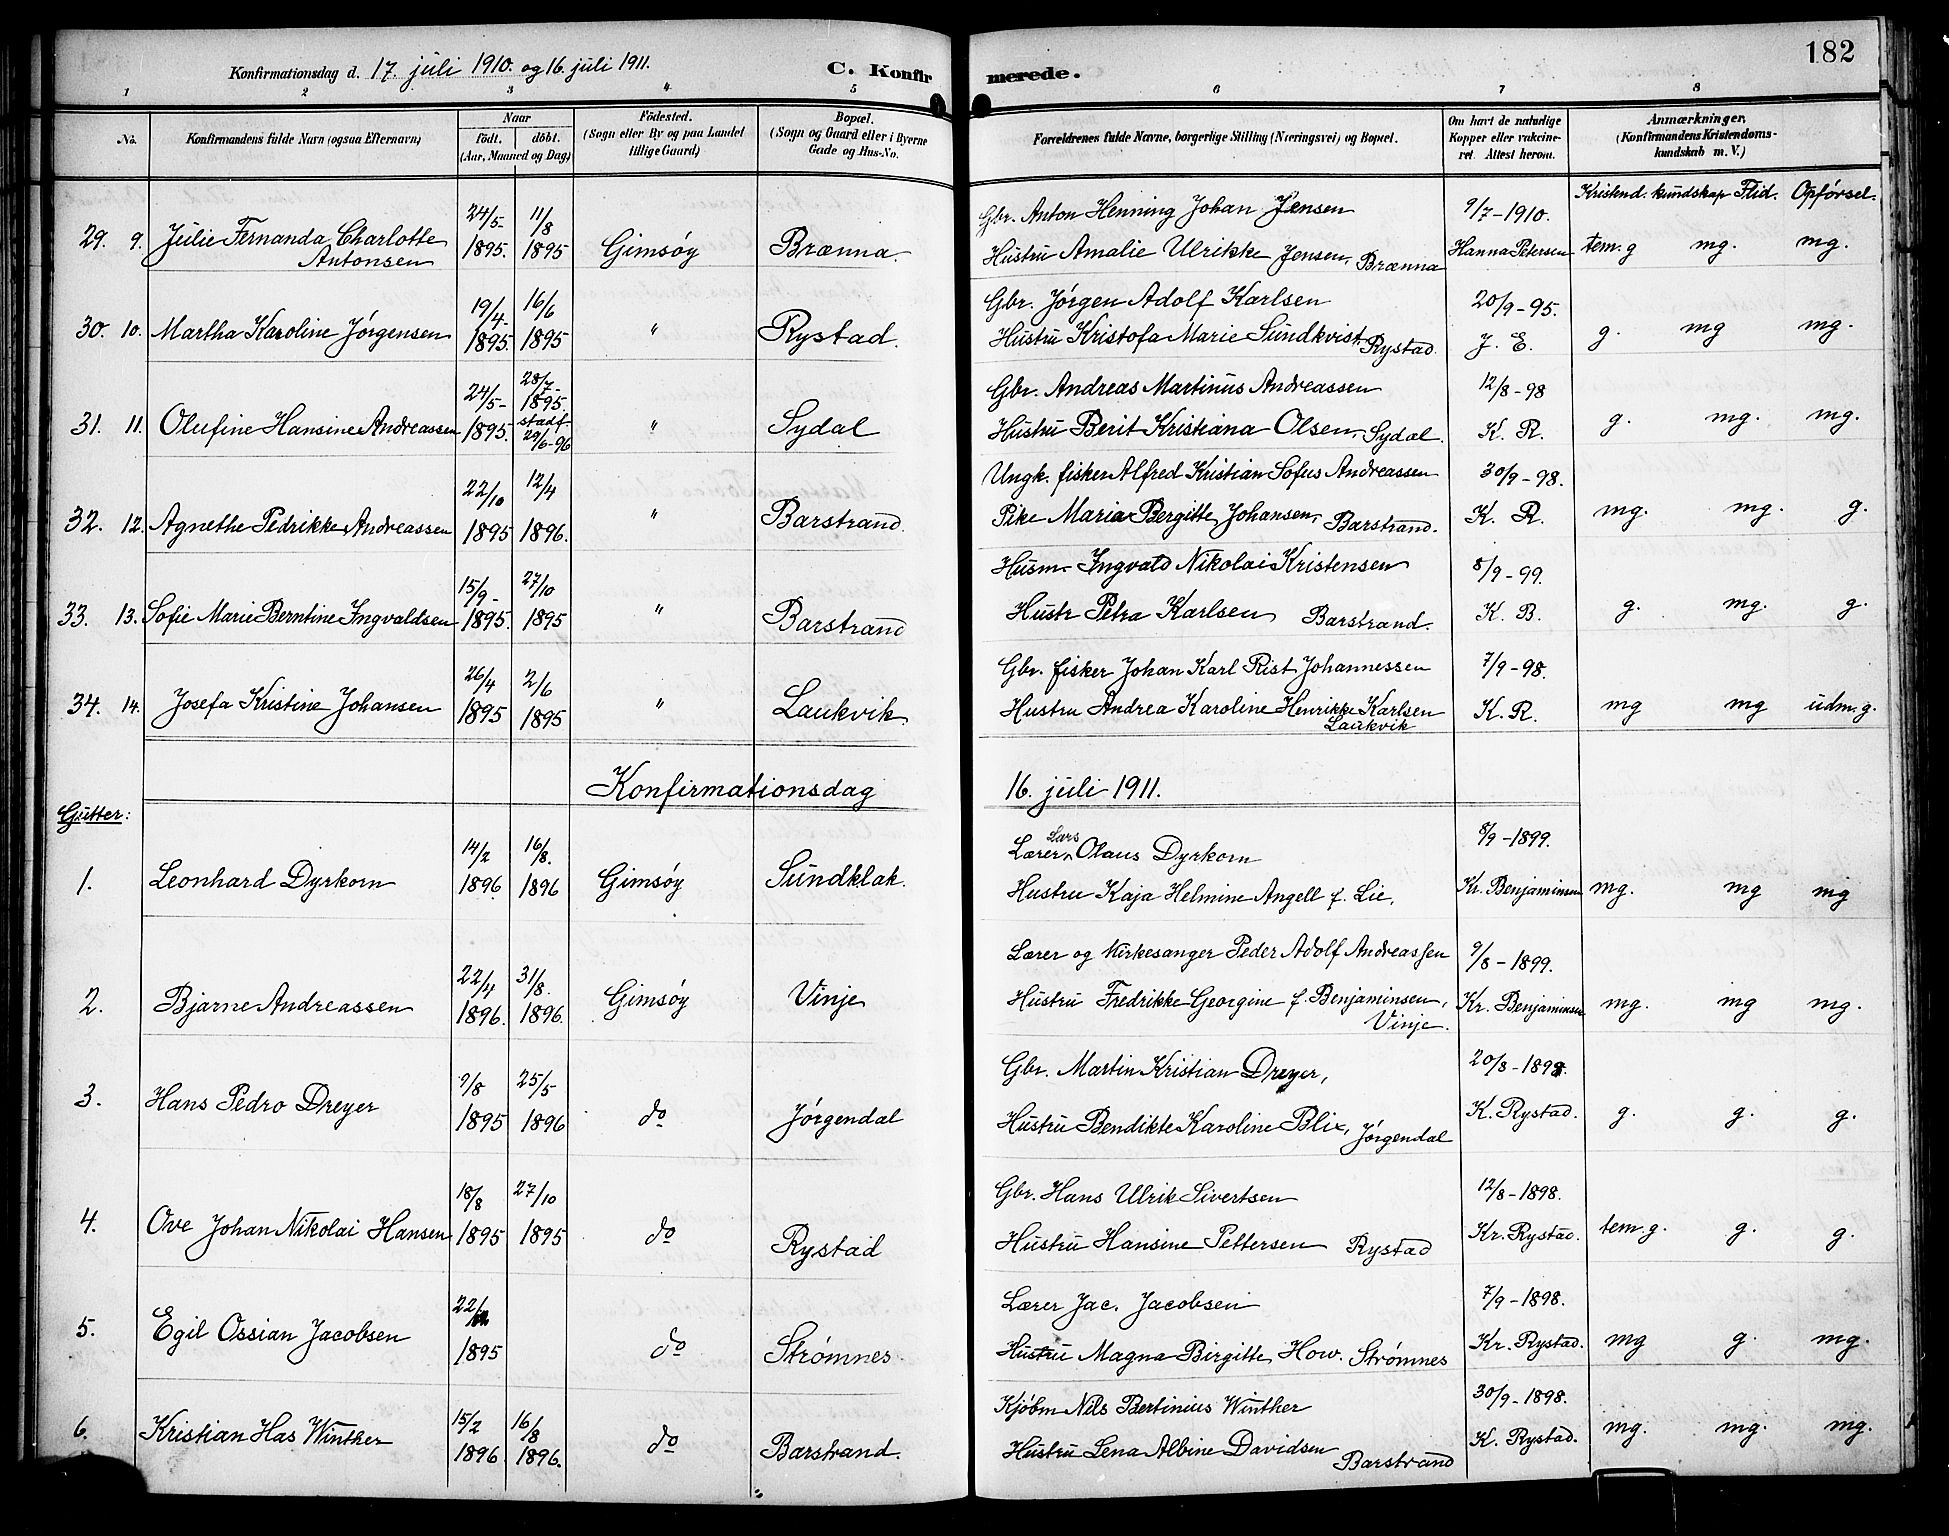 182
Konfirmationsdag d. 17. juli 1910. og 16. juli 1911. C. Konfirmerede.
1 2 3 4 5 6 7 8
No. Konfirmandens fulde Navn (ogsaa Efternavn) Naar födt. döbt. (Aar, Maaned og Dag) Födested. (Sogn eller By og paa Landet tillige Gaard.) Bopæl. (Sogn og Gaard eller i Byerne Gade og Hus-No. Forældrenes fulde Navne, borgerlige Stilling (Næringsvei) og Bopæl. Om havt de naturlige Kopper eller vakcineret. Attest herom. Anmærkninger. (Konfirmandens Kristendomskundskab m. V.)
Kristend. kundskap Flid. Opförsel.
29. 9. Julie Fernanda Charlotte Antonsen 24/5- 1895. 11/8 1895 Gimsöy Brænna. Gbr. Anton Henning Johan Jensen
Hustru Amalie Ulrikke Jensen, Brænna 9/7-1910. Hanna Petersen tem. g mg. mg.
30. 10. Martha Karoline Jørgensen 19/4- 1895. 16/6 1895 " Rystad. Gbr. Jørgen Adolf Karlsen
Hustru Kristofa Marie Sundkvist, Rystad. 20/9-95. J. E. g. mg mg.
31. 11. Olufine Hansine Andreassen 24/5- 1895. 28/7- 1895. stadf. 29/6-96 " Sydal Gbr. Andreas Martinus Andreassen
Hustru Berit Kristiana Olsen, Sydal. 12/8-98 K. R. g. mg. mg.
32. 12. Agnethe Pedrikke Andreassen 22/10 1895 12/4 1896. " Barstrand. Ungk. fisker Alfred Kristian Sofus Andreassen
Pike Maria Bergitte Johansen, Barstrand. 30/9-98. K. R. mg. mg. g.
33. 13. Sofie Marie Berntine Ingvaldsen 15/9- 1895. 27/10 1895 " Barstrand Husm. Ingvald Nikolai Kristensen
Hustr Petra Karlsen Barstrand. 8/9-99. K. B. g. mg. g.
34. 14. Josefa Kristine Johansen 26/4 1895 2/6 1895 " Laukvik. Gbr. fisker Johan Karl Rist Johannessen
Hustru Andrea Karoline Henrikke Karlsen Laukvik 7/9-98. K. R. mg mg udm. g.
Konfirmationsdag 16. juli 1911.
Gutter:
1. Leonhard Dyrkorn 14/2 1896. 16/8. 1896 Gimsöy Sundklak. Lærer Lars Olaus Dyrkorn
Hustru Kaja Helmine Angell f. Lie, 8/9-1899. Kr. Benjaminsen mg. mg mg
2. Bjarne Andreassen 22/4 1896. 31/8. 1896. Gimsöy Vinje Lærer og Kirkesanger Peder Adolf Andreassen
Hustru Fredrikke Georgine f. Benjaminsen, Vinje. 9/8-1899. Kr. Benjaminsen mg. mg mg.
3. Hans Pedro Dreyer 9/8 1895 25/5 1896 do Jørgendal Gbr. Martin Kristian Dreyer,
Hustru Bendikte Karoline Blix, Jørgendal 20/8-1898. K. Rystad. g. g. g.
4. Ove Johan Nikolai Hansen 18/8 1895 27/10 1895 do Rystad Gbr. Hans Ulrik Sivertsen
Hustru Hansine Pettersen Rystad 12/8-1898. Kr. Rystad. tem. g. g. g.
5. Egil Ossian Jacobsen 1895 do Strømnes. Lærer Jac. Jacobsen
Hustru Magna Birgitte How. Strømnes 7/9-1898. Kr. Rystad. mg g. mg.
6. Kristian Has Winther 15/2 1896 16/8 1896. do Barstrand. Kjøbm Nils Bertinius Winther
Hustru Lena Albine Davidsen Barstrand 30/9-1898. K. Rystad. mg. mg. mg.